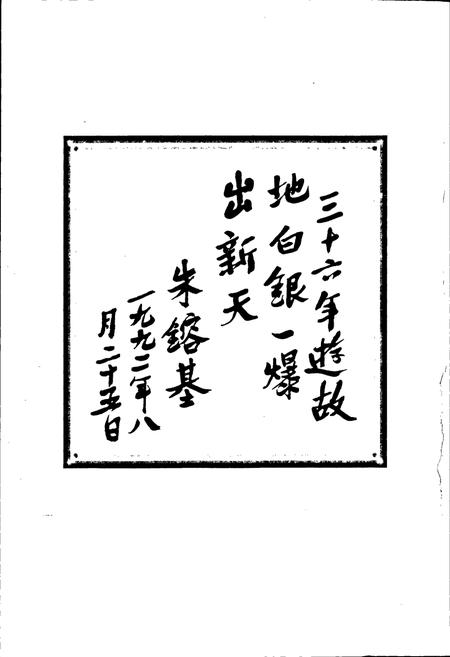 三十六年遊故
地白银一爆
出新天
朱镕基
一九九二年八
月二十五日